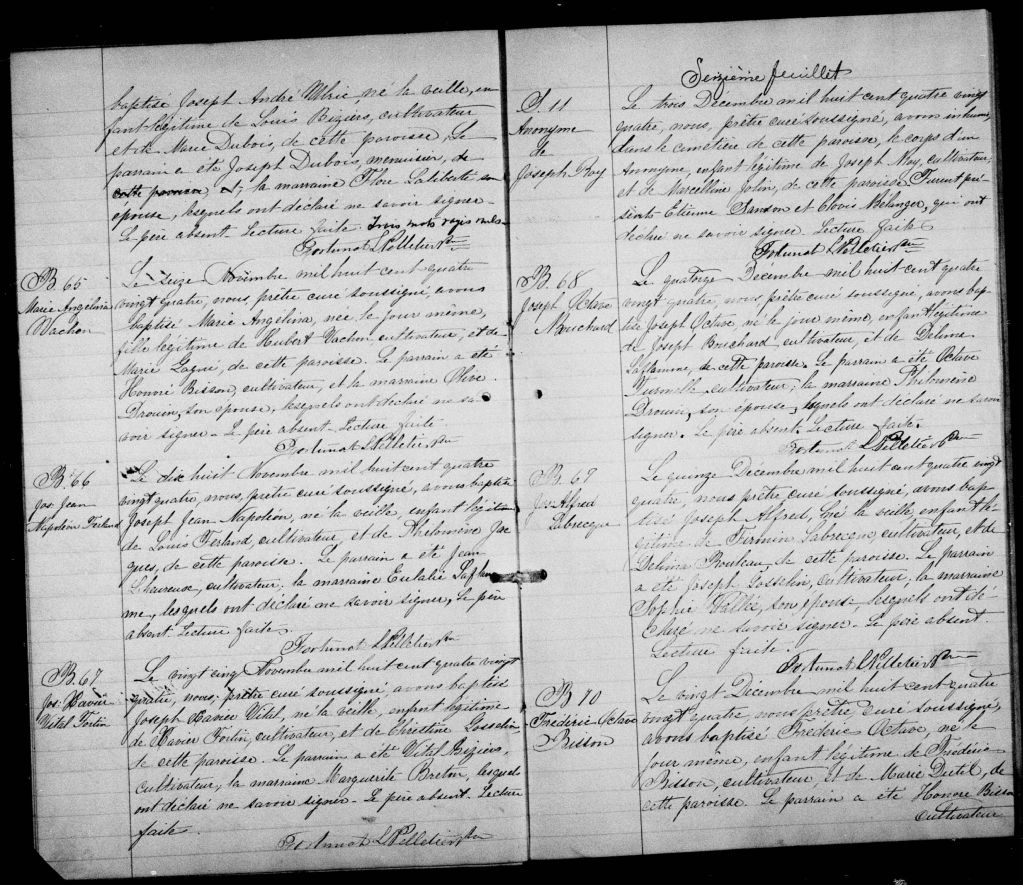 baptisé Joseph André Ulric, né la veille, en
fant légitime de Louis Bizier, cultivateur
et de Marie Dubois, de cette paroisse. Le
parrain a été Joseph Dubois, menuisier, de
cette paroisse &, la marraine Flore Laliberté son
épouse, lesquels ont déclaré ne savoir signer-
Le père absent. Lecture faite Trois mots rayés nuls-
Fortunat L Pelletier Ptre
B 65
Marie Angelina
Vachon
Le seize Novembre mil huit cent quatre
vingt quatre, nous, prêtre curé soussigné, avons
baptisé Marie Angelina, née le jour même,
fille légitime de Hubert Vachon, cultivateur, et de
Marie Lagne, de cette paroisse. Le parrain a été
Honoré Bisson, cultivateur, et la marraine Olive
Drouin, son épouse, lesquels ont déclaré ne sa
voir signer- Le père absent. Lecture faite.
Fortunat L Pelletier Ptre
B. 66
Jos. Jean
Napoléon Ferland
Le dix huit Novembre mil huit cent quatre
vingt quatre, nous, prêtre curé soussigné, avons baptisé
Joseph Jean Napoléon, né la veille, enfant légitime
de Louis Ferland, cultivateur, et de Philomène Jac
ques, de cette paroisse. Le parrain a été Jean
L'heureuse, cultivateur, la marraine Eulalie Laflam
me, lesquels ont déclaré ne savoir signer, Le père
absent. Lecture faite.
Fortunat L Pelletier Ptre
B. 67
Jos: Xavier
Vital Fortin
Le vingt cinq Novembre mil huit cent quatre vingt
quatre, nous, prêtre curé soussigné, avons baptisé
Joseph Xavier Vital, né la veille, enfant légitime
de Xavier Fortin, cultivateur, et de Christine Gosselin
de cette paroisse. Le parrain a été Vital Bizier,
cultivateur, la marraine Marguerite Breton, lesquels
ont déclaré ne savoir signer- Le père absent. Lecture
faite.
Fortunat L Pelletier Ptre
Seizième feuillet
S. 11
Anonyme
de
Joseph Roy
Le trois Décembre mil huit cent quatre vingt
quatre, nous, prêtre curé soussigné, avons inhumé
dans le cimetière de cette paroisse, le corps d'un
Anonyme, enfant légitime de Joseph Roy, cultivateur,
et de Marcelline Jolin, de cette paroisse. Furent pré
sents Etienne Samson et Clovis Bélanger, qui ont
déclaré ne savoir signer. Lecture faite
Fortunat L Pelletier Ptre
B. 68
Joseph Octave
Bouchard
Le quatorze Décembre mil huit cent quatre
vingt quatre, nous, prêtre curé soussigné, avons bap
tisé Joseph Octave, né le jour même, enfant légitime
de Joseph Bouchard cultivateur, et de Delima
Laflamme, de cette paroisse. Le parrain a été Octave
cultivateur, la marraine Philomène
Drouin, son épouse, lesquels ont déclaré ne savoir
signer. Le père absent. Lecture faite.
Fortunat L Pelletier Ptre
B. 67
Jos. Alfred
Labrecque
Le quinze Décembre mil huit cent quatre vingt
quatre, nous prêtre curé soussigné, avons bap
tisé Joseph Alfred, né la veille enfant lé
gitime de Firmin Labrecque, cultivateur, et de
Delima Rouleau, de cette paroisse. Le parrain
a été Joseph Gosselin, cultivateur, la marraine
Sophie Vallée, son épouse, lesquels ont dé-
claré ne savoir signer- Le père absent.
Lecture faite.
Fortunat L Pelletier Ptre
B 70
Frédéric Octave
Bisson
Le vingt Décembre mil huit cent quatre
vingt quatre, nous, prêtre, curé soussigné,
avons baptisé Frédéric Octave, né le
jour même, enfant légitime de Frédéric
Bisson, cultivateur, et de Marie Dutil, de
cette paroisse. Le parrain a été Honoré Bisson
cultivateur